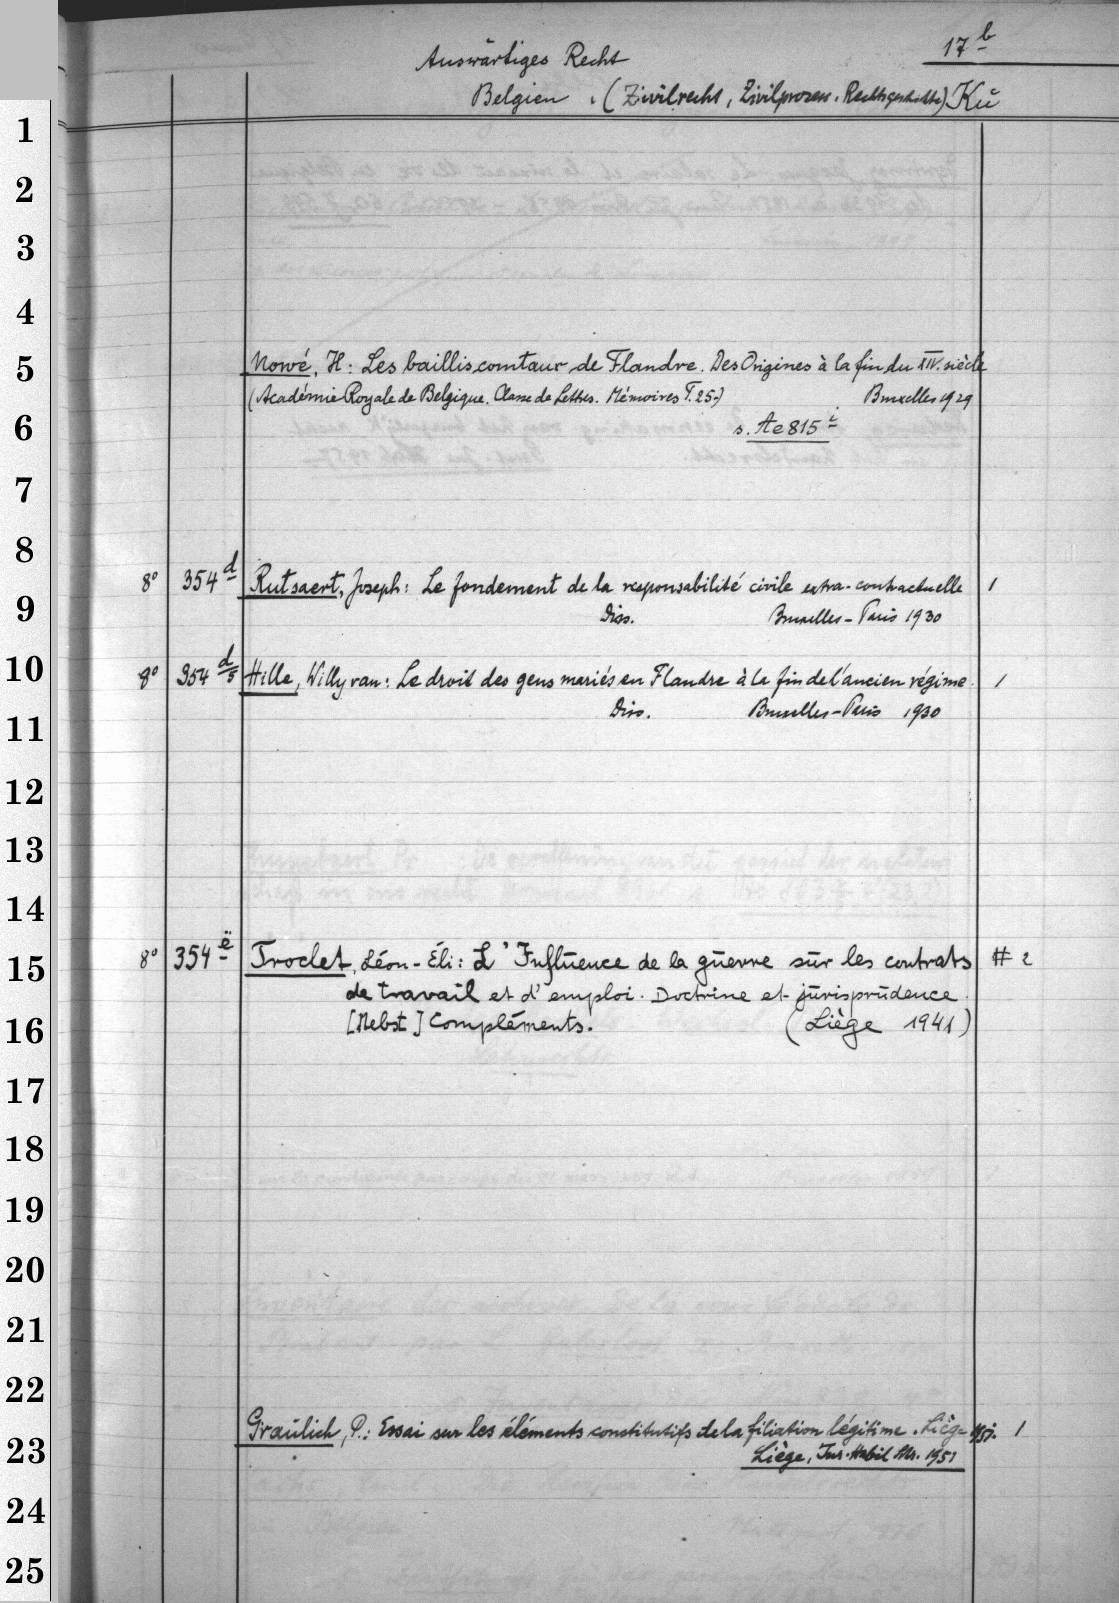 17 b
Auswärtiges Recht
Belgien. (Zivilrecht, Zivilprozess, Rechtsgeschichte) Kü
1
2
3
4
5 Nowé, H: Les baillis comtaux de Flandre. Des Origines à la fin du XIV. siècle
(Académie Royale de Belgique. Classe de Lettres. Mémoires T. 25.) Bruxelles 1929
6 s. Ae 815 i
7
8
8° 354 d Rutsaert, Joseph: Le fondement de la responsabilité civile extra-contractuelle 1
9 Diss. Bruxelles-Paris 1930
10 8° 354 d/5 Hille, Willy van: Le droit des gens mariés en Flandre à la fin de l'ancien régime. 1
11 Diss. Bruxelles-Paris 1930
12
13
14
15 8° 354 e Troclet, Léon-Éli: L'Influence de la guerre sur les contrats # 2
de travail et d'emploi. Doctrine et jurisprudence.
16 [Nebst] Compléments. (Liège 1941)
17
18
19
20
21
22
23 Graulich, P.: Essai sur les éléments constitutifs de la filiation légitime. Liège 1951. 1
Liège, Jur. Habil Schr. 1951
24
25